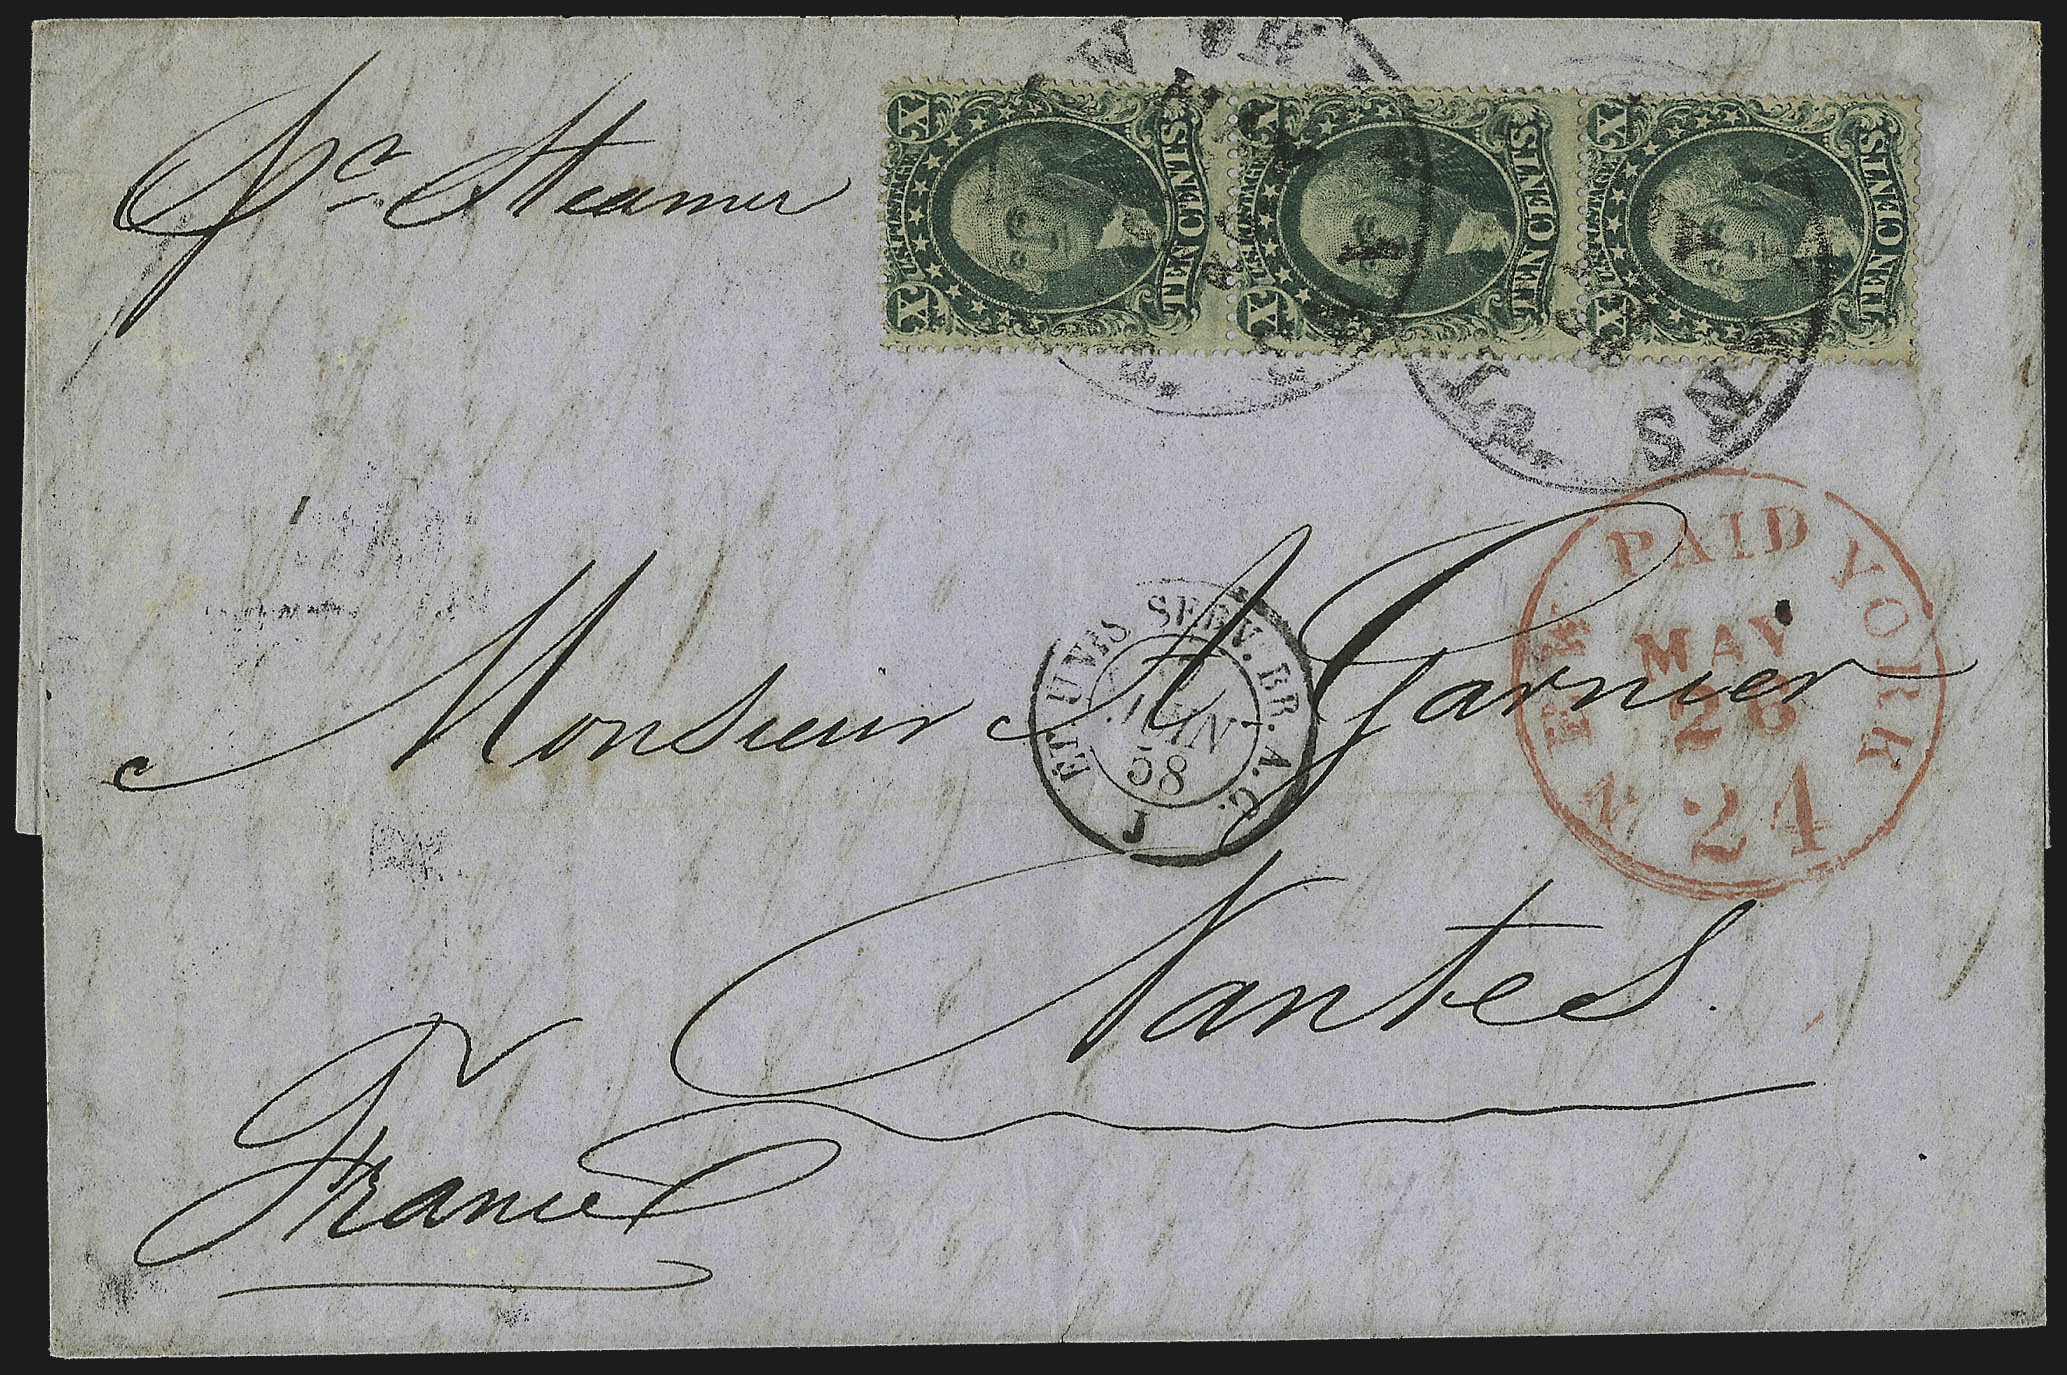 pr Steamer
X U.S. POSTAGE X
TEN CENTS.
X U.S. POSTAGE X
TEN CENTS.
X U.S. POSTAGE X
TEN CENTS.
ST. LOUIS
Monsieur A Garnier
Nantes.
France
ET. UNIS SERV. BR. A. C.
JUIN
58
J
NEW PAID YORK
MAY
26
24